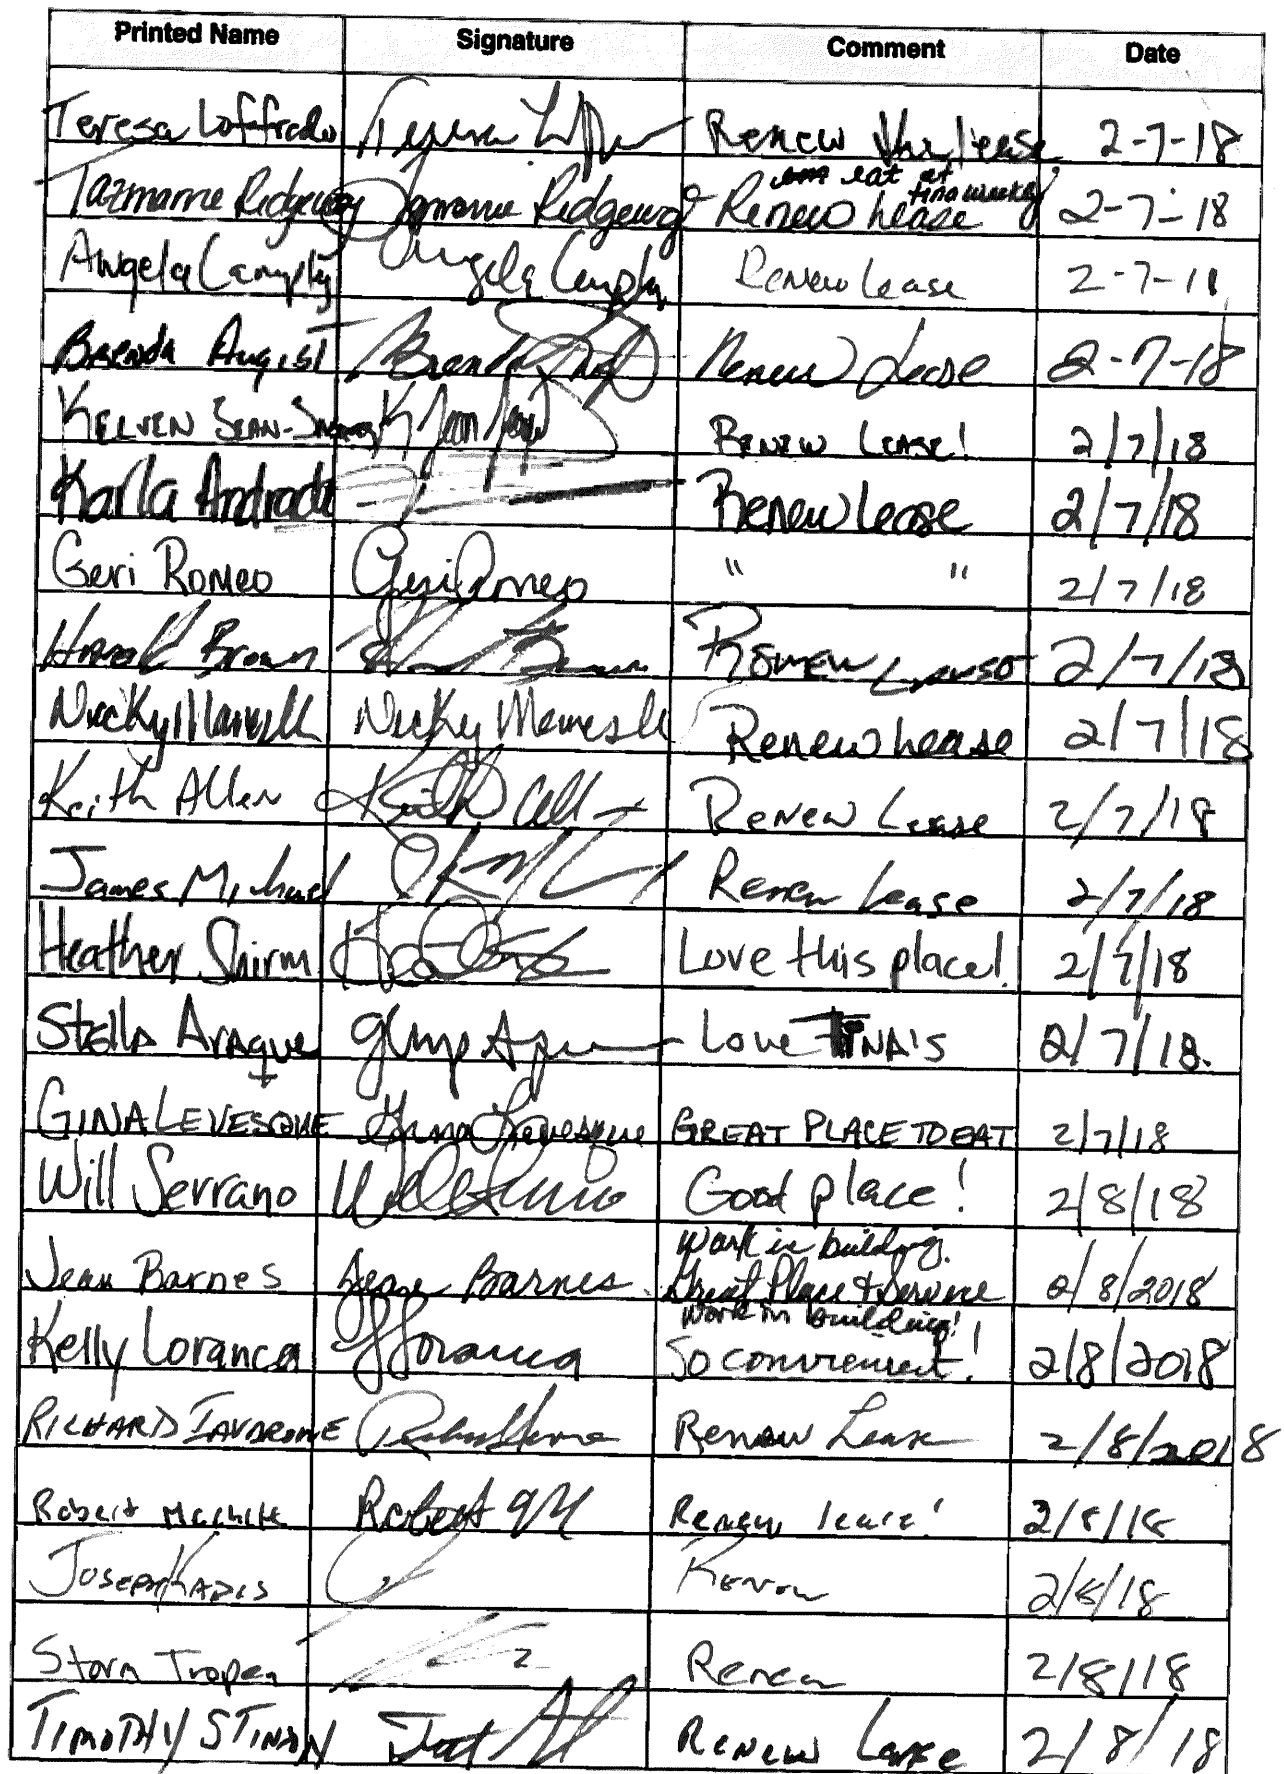 Printed Name Signature Comment Date
Teresa Loffredo Teresa Renew the lease 2-7-18
eat at
Tina weekly
Tazmanne Ridgeway Tazmanne Ridgeway Renew Lease 2-7-18
Angela Angela Renew Lease 2-7-18
Brenda August Brenda Renew Lease 2-7-18
Kelven Jean- K Jean Renew Lease! 2/7/18
Karla Andrade Renew lease 2/7/18
Geri Romeo Geri Romeo " " 2/7/18
Harold Brown Renew Lease 2/7/18
Nicky Nicky Renew Lease 2/7/18
Keith Allen Keith Renew Lease 2/7/18
James Michael Renew Lease 2/7/18
Heather Shirm Love this place! 2/7/18
Stella Araque Love Tina's 2/7/18.
Gina Levesque Gina Levesque GREAT PLACE TO EAT 2/7/18
Will Serrano Will Serrano Good place! 2/8/18
Work in building.
Jean Barnes Jean Barnes Great Place & Service 2/8/2018
Work in building!
Kelly Loranca Loranca So convienient! 2/8/2018
Richard Renew Lease 2/8/2018
Robert Robert Renew lease! 2/8/18
Joseph Kadis Renew 2/8/18
Storm Renew 2/8/18
Timothy Stinson Renew Lease 2/8/18